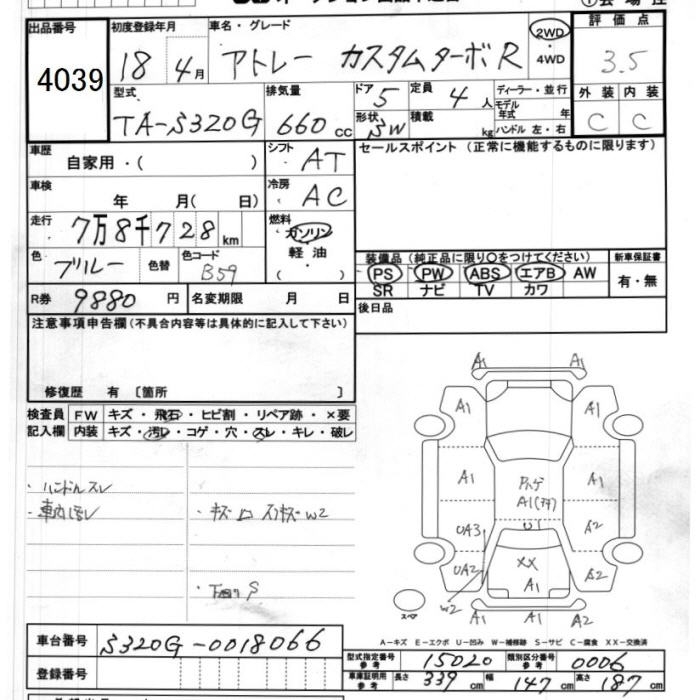 出品番号 初度登録年月 車名・グレード 2WD 評価点
4039 18 4月 アトレー カスタムターボR ・4WD 3.5
型式 排気量 ドア 5 定員 4人 ディーラー・並行 外装 内装
TA-S320G 660cc 形状 SW 積載 kg モデル年式 年 C C
ハンドル 左・右
車歴 自家用・( ) シフト AT セールスポイント (正常に機能するものに限ります)
車検 年 月( 日) 冷房 AC
走行 7万8千728km 燃料 ガソリン
軽油
・( )
色 ブルー 色替 色コード B59
装備品 (純正品に限り○をつけてください) 新車保証書
PS PW ABS エアB AW 有・無
SR ナビ TV カワ
R券 9880円 名変期限 月 日 後日品
注意事項申告欄(不具合内容等は具体的に記入して下さい)
修復歴 有 〔箇所 〕
検査員 FW キズ・飛石・ヒビ割・リペア跡・×要
記入欄 内装 キズ・汚レ・コゲ・穴・スレ・キレ・破レ
・ハンドルスレ
・車内汚レ
・下回りS
A1 A1
A1 A1
A1 A1
A1
UA3 U1 A2
UA2 XX A2
W2 A1
A1 A1 A2
スペア
A-キズ E-エクボ U-凹み W-補修跡 S-サビ C-腐食 XX-交換済
車台番号 S320G-0018066
登録番号
型式指定番号 参考 15020 類別区分番号 参考 0006
車庫証明用 参考 長さ 339cm 幅 147cm 高さ 187cm